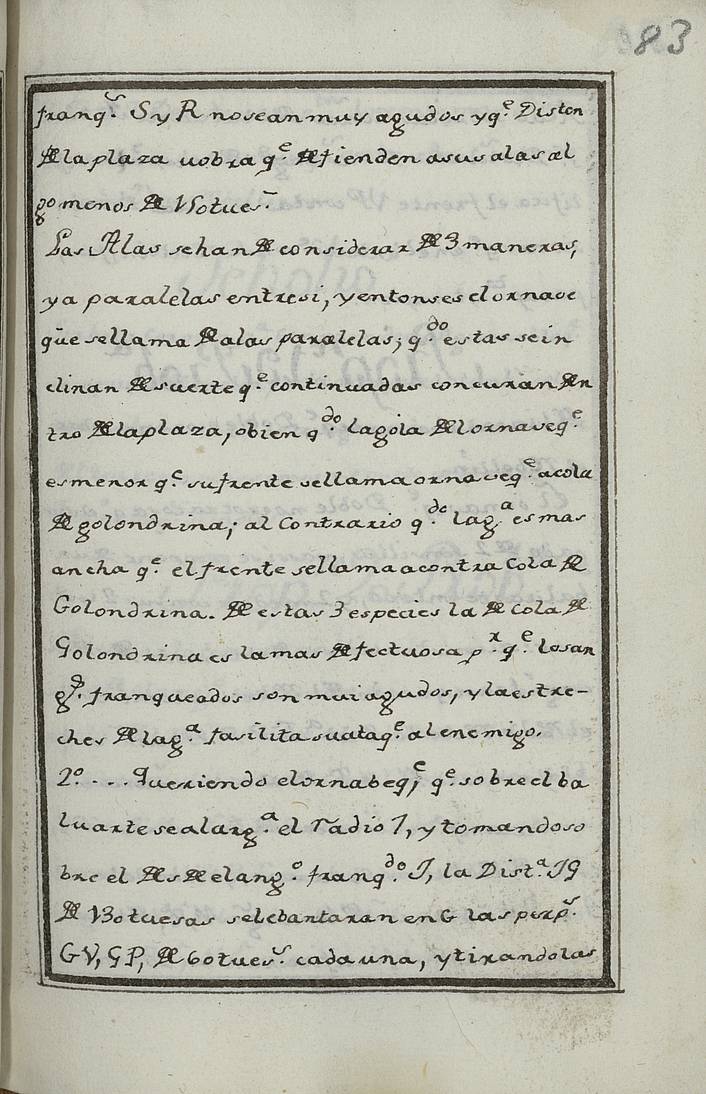 83
franq.s S y R no sean muy agudos y q.e Disten
De la plaza u obra q.e Defienden a sus alas al
go menos De 150 tues.s
Las Alas se han De considerar De 3 maneras,
ya paralelas entre si, y entonses el ornave
que se llama De alas paralelas; q.do estas se in
clinan De suerte q.e continuadas concuran Den
tro De la plaza, o bien q.do la gola Del ornaveq.e
es menor q.e su frente se llama ornaveq.e a cola
De golondrina; al Contrario q.do la g.a es mas
ancha q.e el frente se llama a contra Cola De
Golondrina. De estas 3 especies la De Cola De
Golondrina es la mas Defectuosa p.r q.e los an
g.s franqueados son mui agudos, y la estre-
ches De la g.a fasilita su ataq.e al enemigo.
2º... Queriendo el ornabeq.e q.e sobre el ba
luarte se alarg.a el radio I, y tomando so
bre el Desde el ang.o franq.do I, la Dist.a IG
De 130 tuesas se lebantaran en G las perp.s
GV, GP, De 60 tues.s cada una, y tirando las